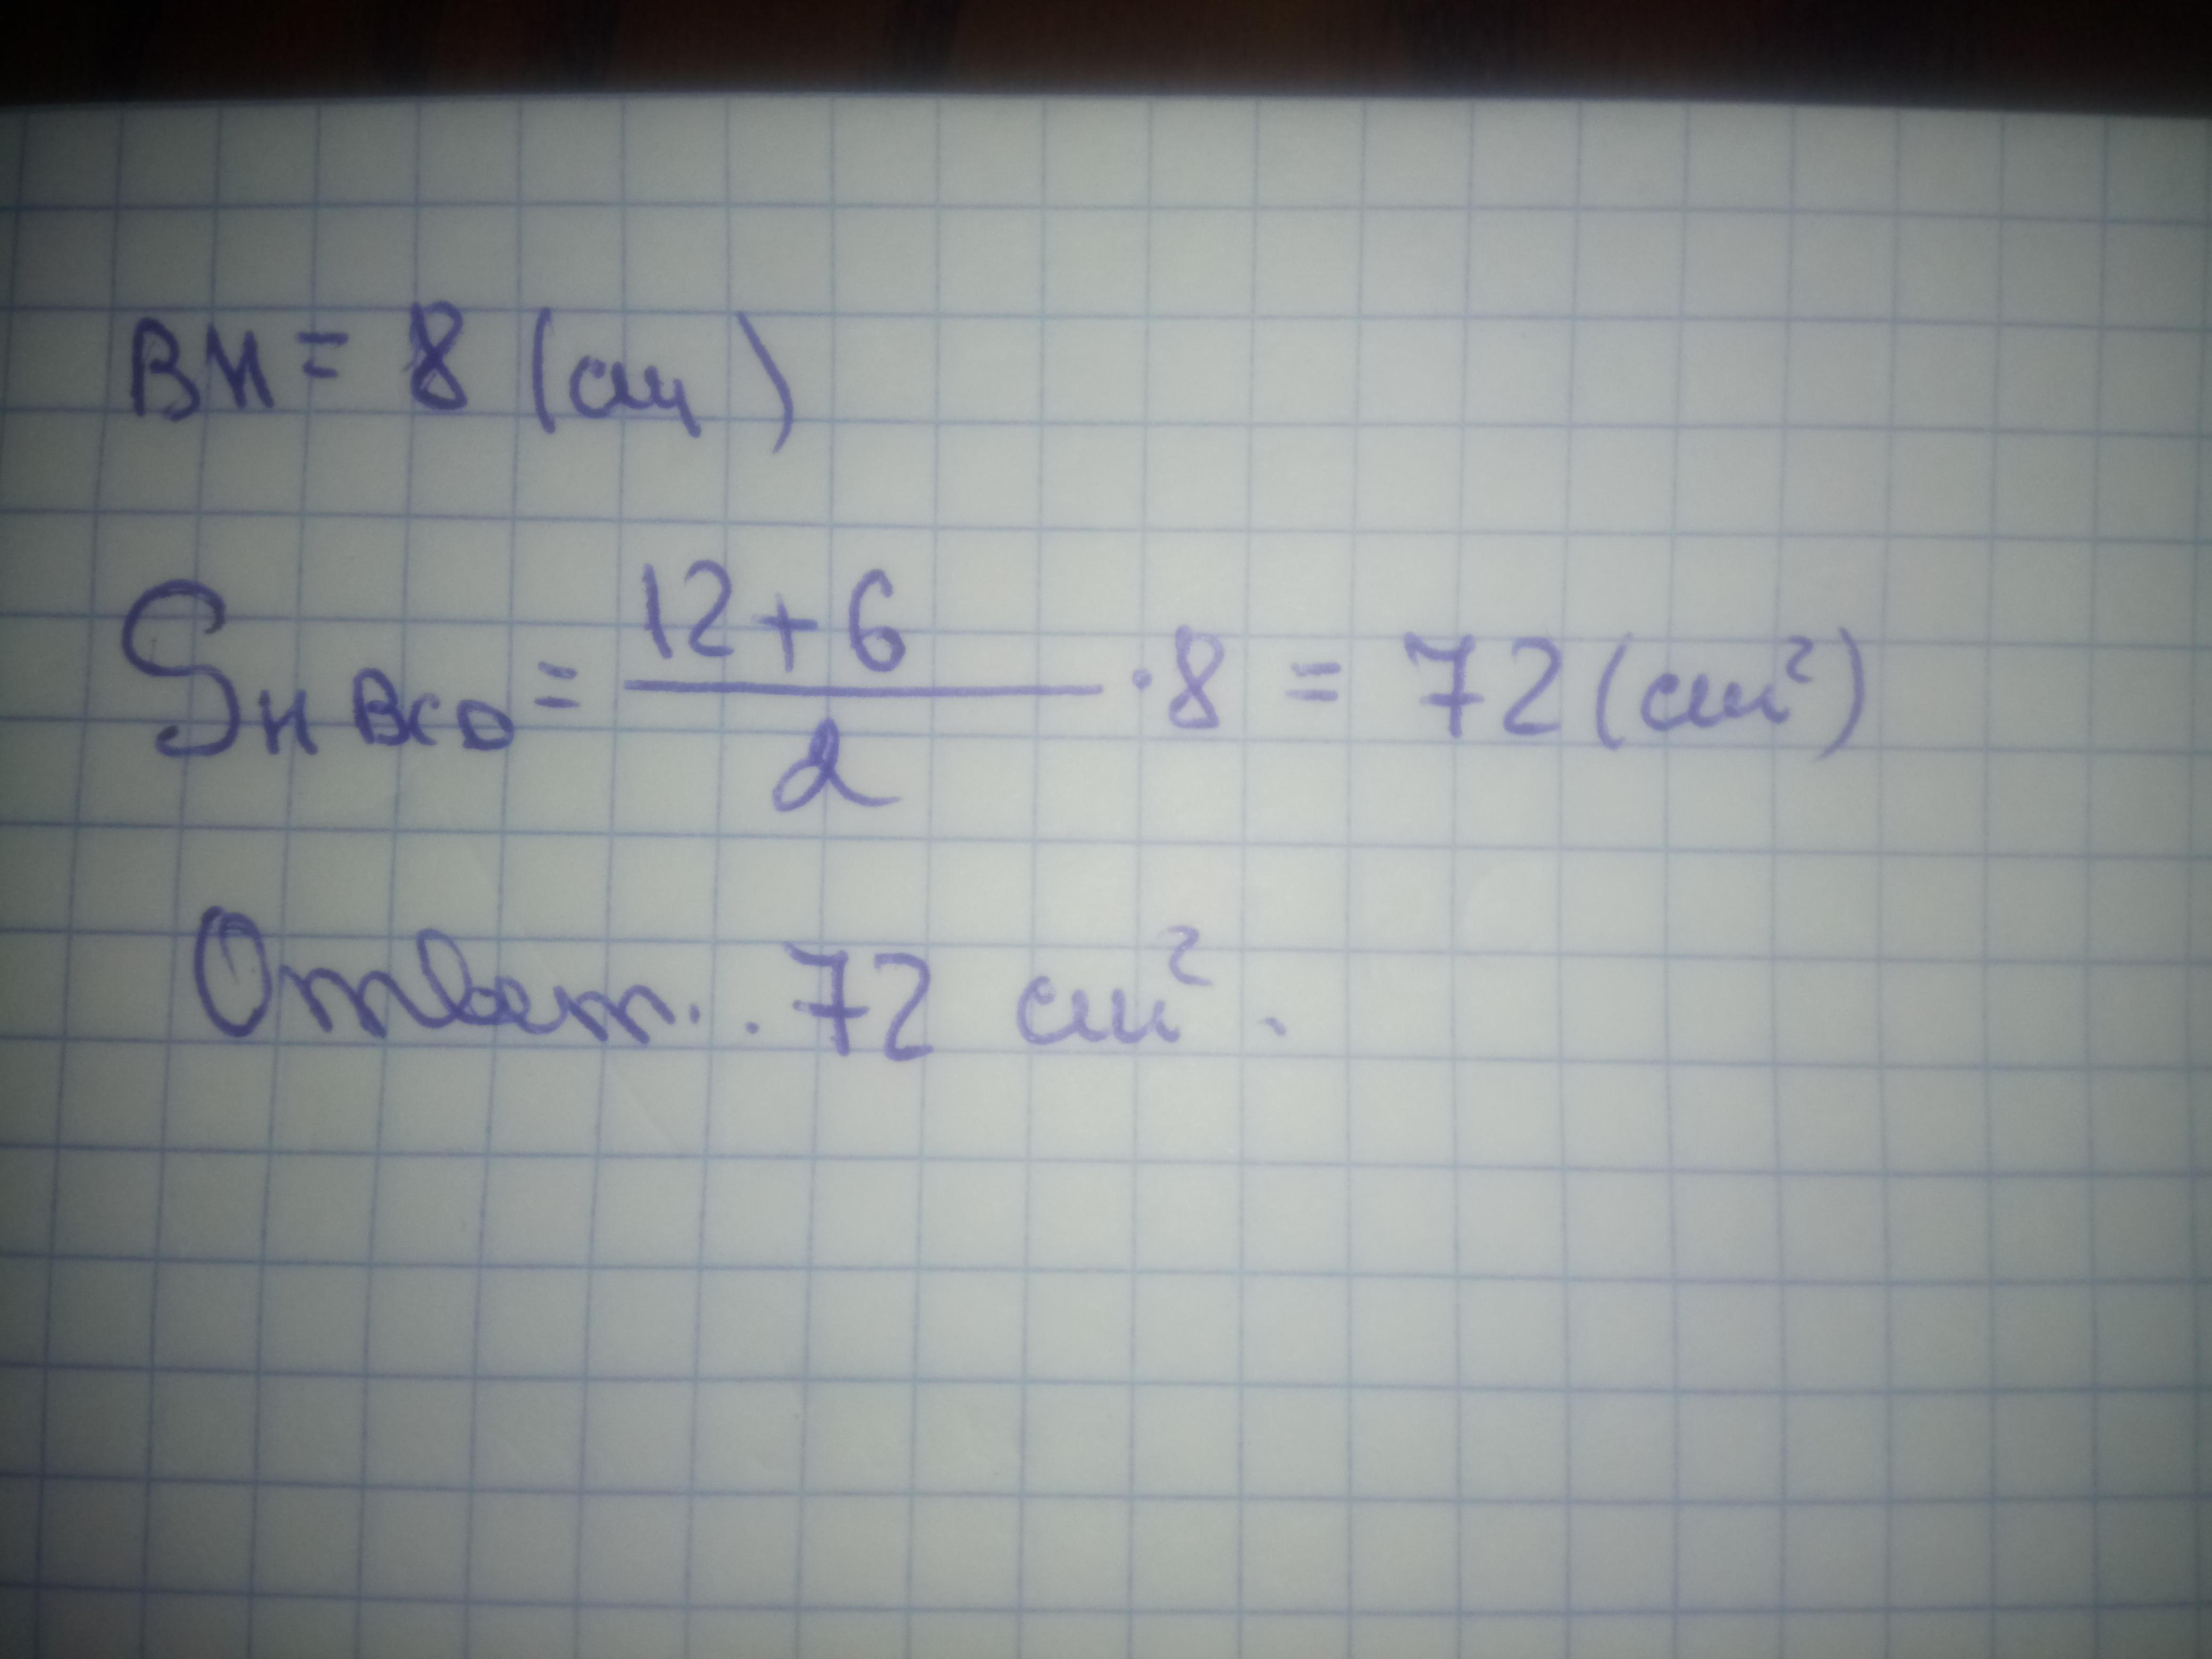 BH = 8 (см)
S_HBCD = \frac{12+6}{2} · 8 = 72 (см²)
Ответ: 72 см².